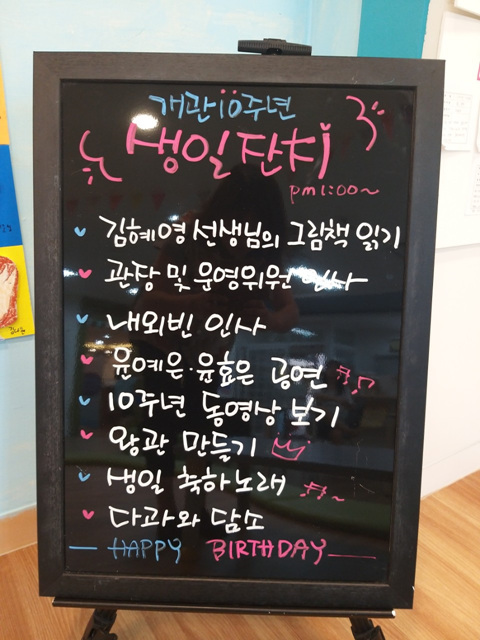 개관10주년
생일잔치
pm1:00~
김혜영 선생님의 그림책 읽기
관장 및 운영위원 인사
내외빈 인사
윤예은·윤효은 공연
10주년 동영상 보기
왕관 만들기
생일 축하노래
다과와 담소
HAPPY BIRTHDAY